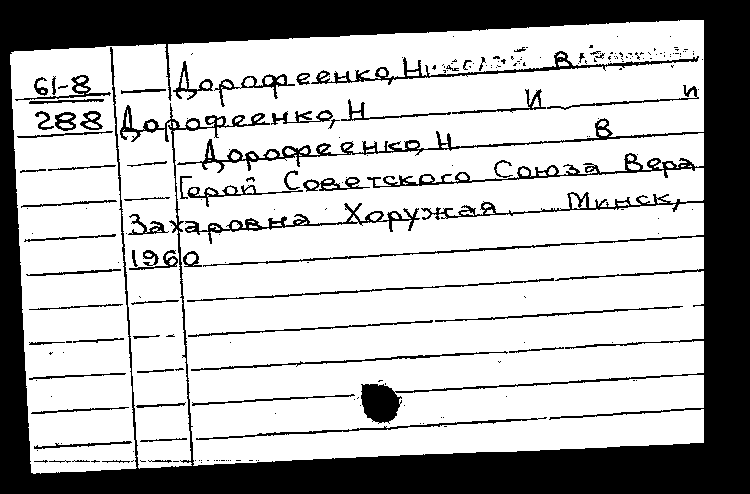 61-8 Дорофеенко, Николай
288 Дорофеенко, Н И и
Дорофеенко, Н В
Герой Советского Союза Вера
Захаровна Хоружая. Минск,
1960